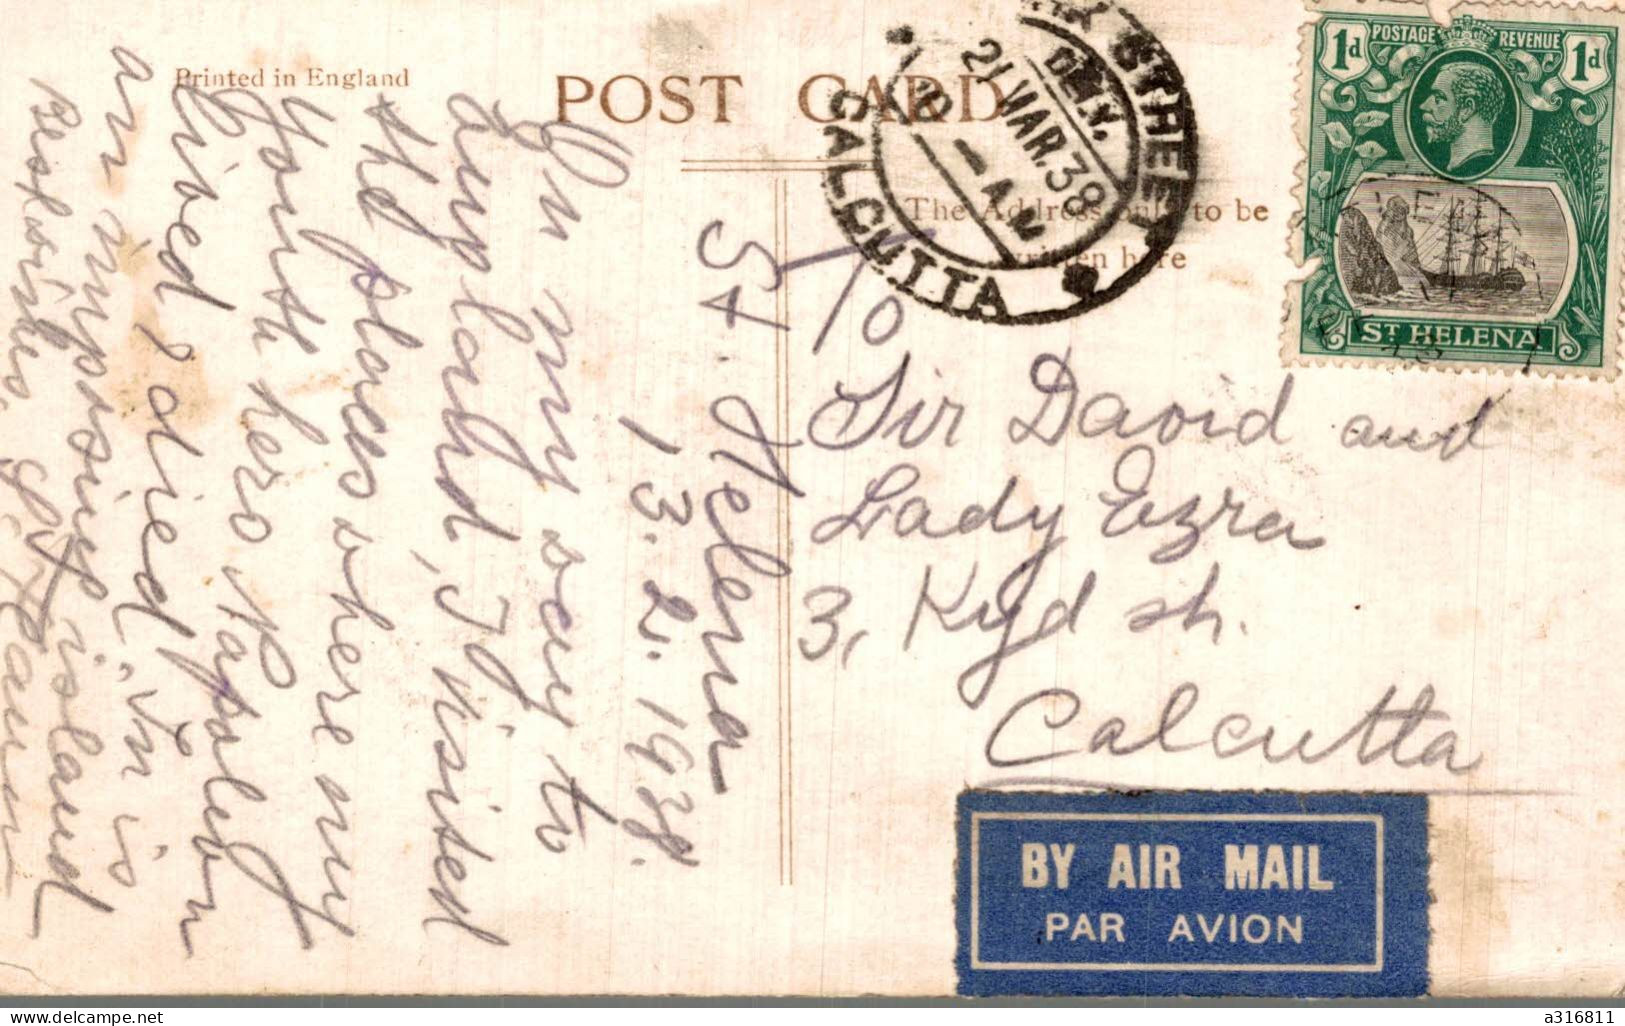 Printed in England
POST CARD
The Address only to be
written here
St. Helena
13.2.1938.
On my way to
England, I visited
the places where my
Youth hero Napoleon
lived & died. It is
an imposing island
Best wishes
To
Sir David and
Lady Ezra
3, Kyd St.
Calcutta
STREET
CALCUTTA
DELY.
21 MAR. 38
A.M.
POSTAGE REVENUE
1d 1d
ST HELENA
BY AIR MAIL
PAR AVION
delcampe.net
a316811